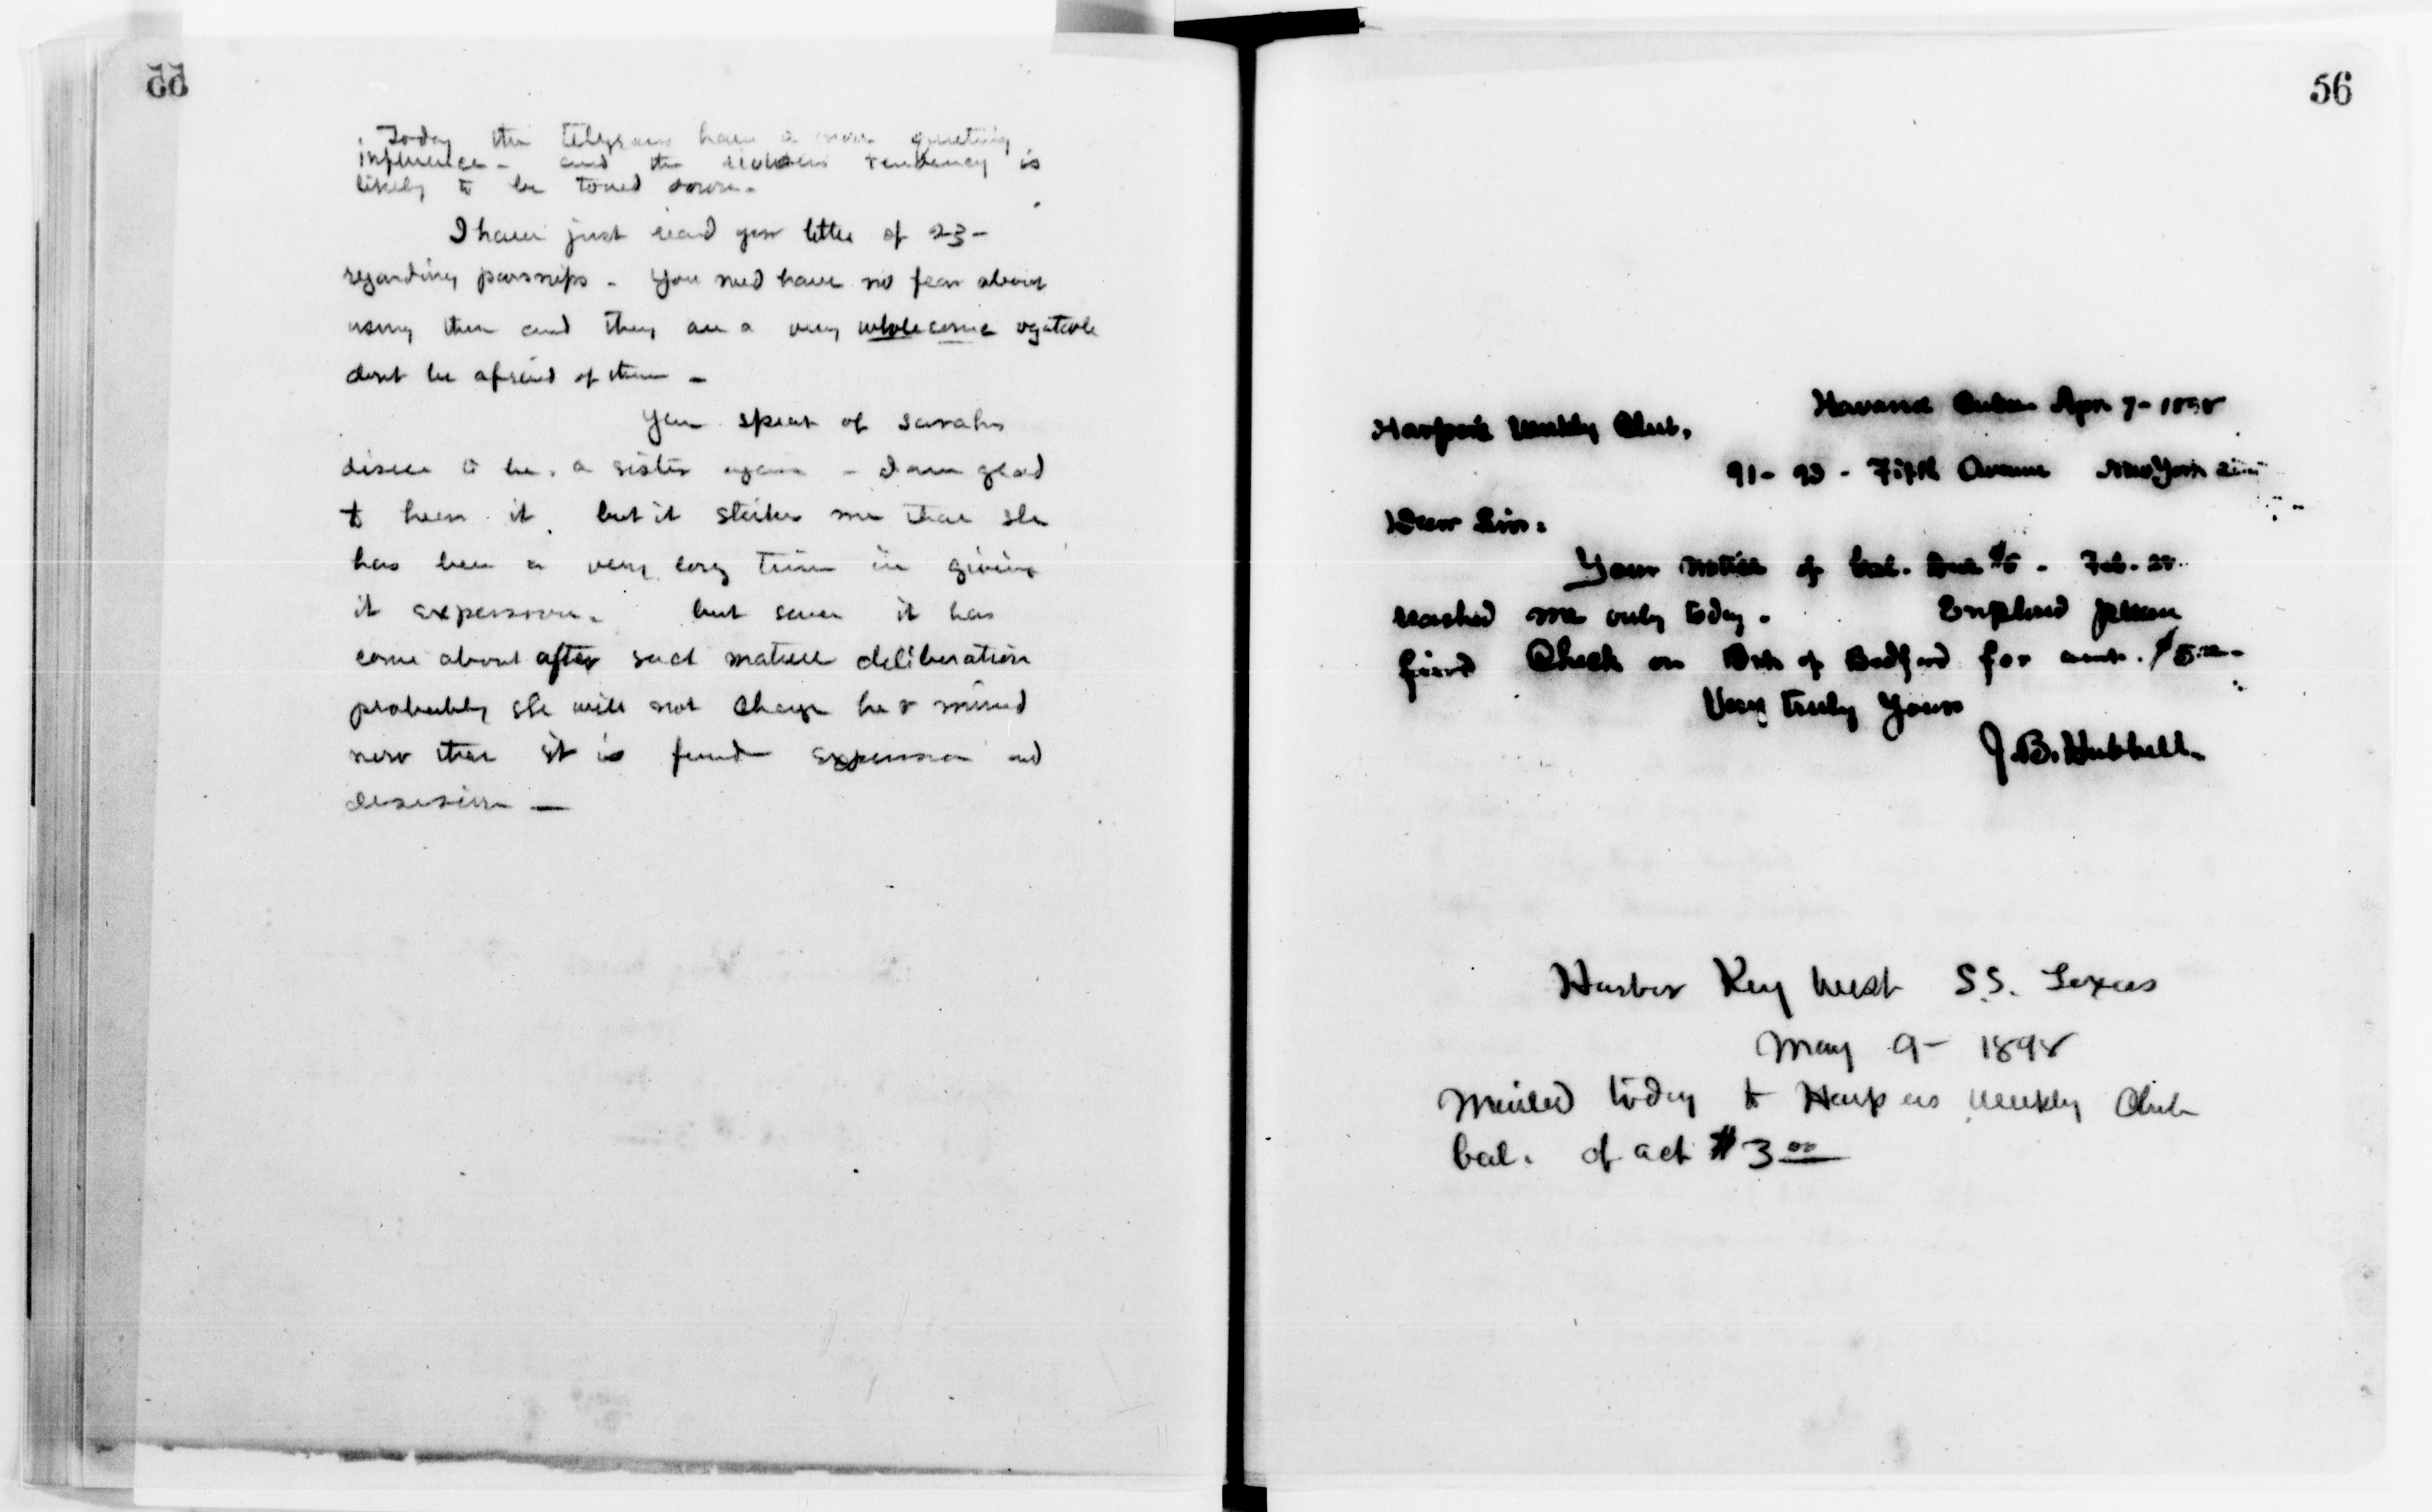 55
Today the telegrams have a more quieting
influence - and the violent tendency is
likely to be toned down -
I have just read your letter of 23 -
regarding parsnips - You need have no fear about
using them and they are a very wholesome vegetable
dont be afraid of them -
You speak of Sarahs
desire to be a sister again - I am glad
to hear it but it strikes me that she
has been a very long time in giving
it expression. but since it has
come about after such mature deliberation
probably she will not change her mind
now that it is found expression and
decision -
56
Havana Cuba Apr 7 - 1898
Harper's Weekly Club,
91 - 93 - Fifth Avenue New York
Dear Sir:
Your notice of bal. due $5 - Feb. 28
reached me only today. Enclosed please
find Check on Bk of Bedford for amt. $5.00
Very truly Yours
J. B. Hubbell.
Harbor Key West S.S. Texas
May 9 - 1898
Mailed today to Harpers Weekly Club
bal. of act $3 00